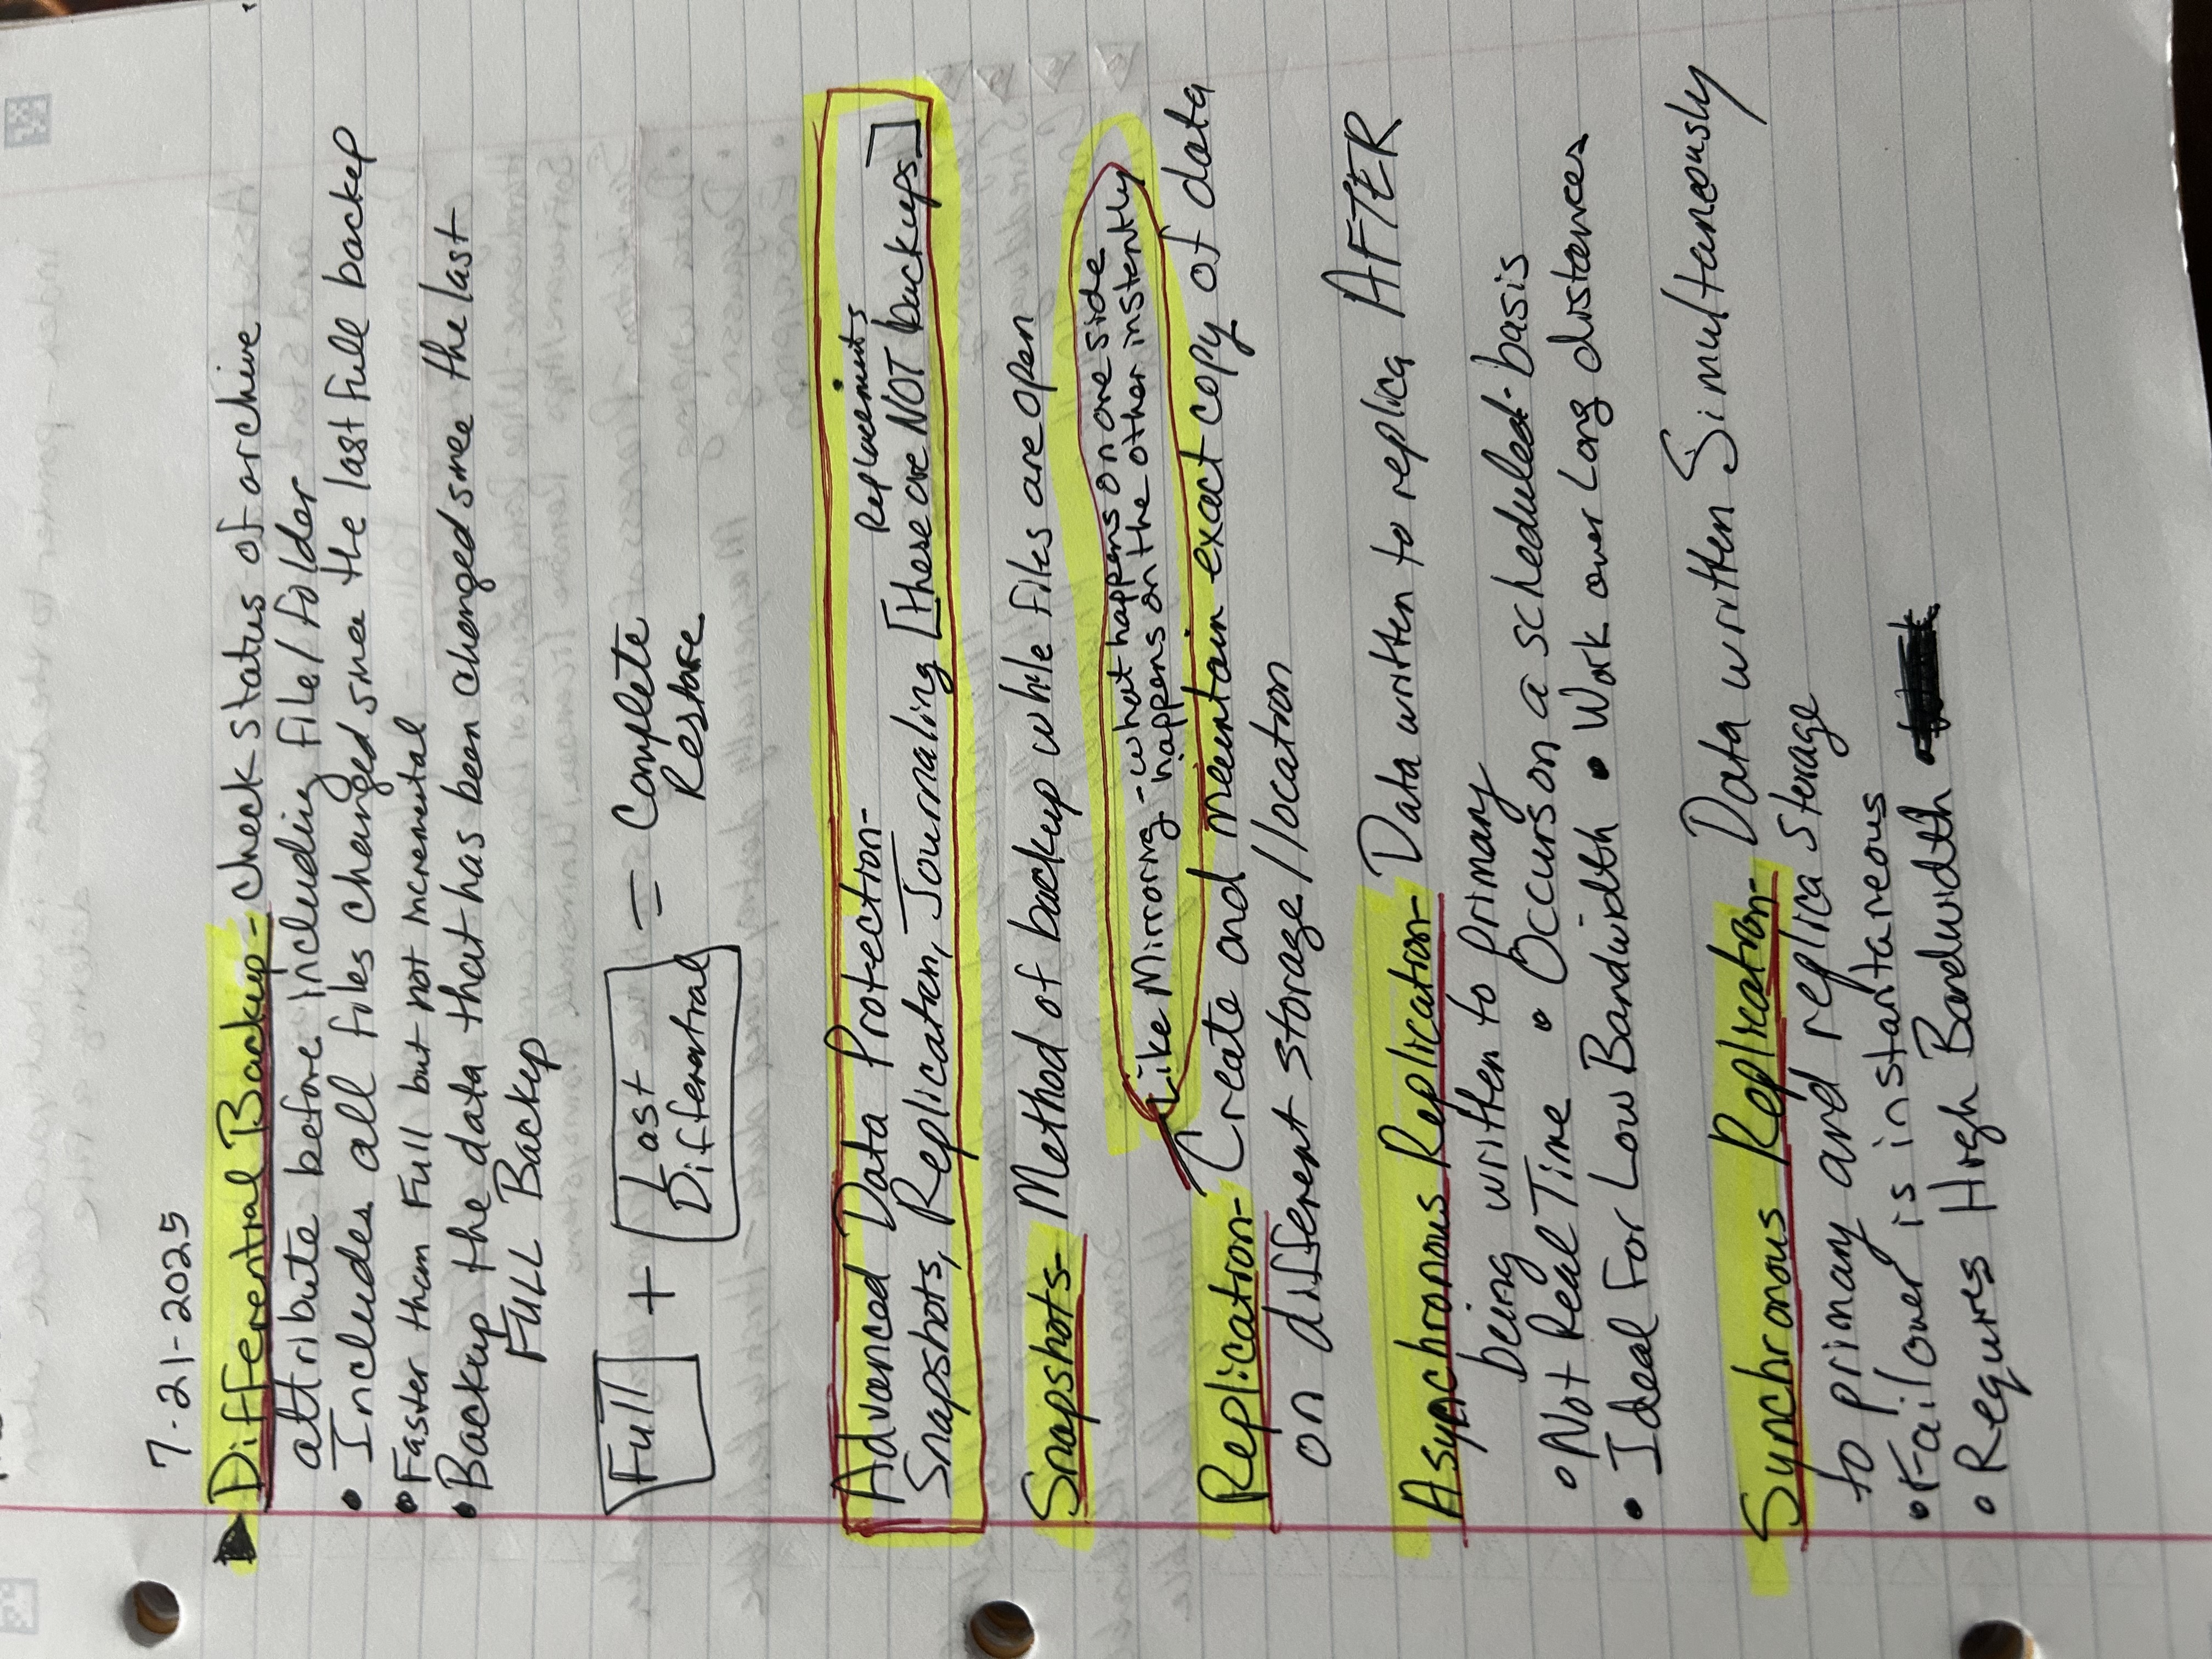 7-21-2025
Differential Backup - check status of archive
attribute before including file/folder
• Includes all files changed since the last full backup
• Faster than Full but not incremental
• Backup the data that has been changed since the last
FULL Backup
Full + Last Differential = Complete Restore
Advanced Data Protection-
Replacements
Snapshots, Replication, Journaling [these are NOT backups]
Snapshots- Method of backup while files are open
Like Mirroring - what happens on one side
happens on the other instantly
Replication- Create and maintain exact copy of data
on different storage/location
Asynchronous Replication- Data written to replica AFTER
being written to primary
• Not Real Time • Occurs on a scheduled basis
• Ideal For Low Bandwidth • Work over Long distances
Synchronous Replication- Data written Simultaneously
to primary and replica storage
• Failover is instantaneous
• Requires High Bandwidth